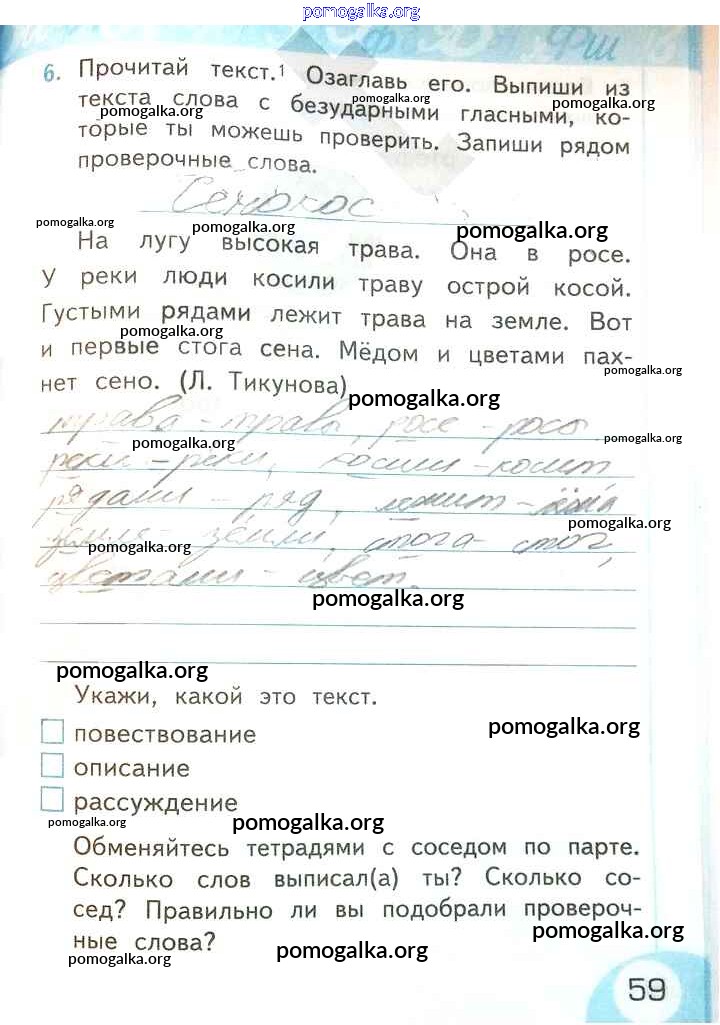 pomogalka.org
6. Прочитай текст.¹ Озаглавь его. Выпиши из
pomogalka.org pomogalka.org pomogalka.org
текста слова с безударными гласными, ко-
торые ты можешь проверить. Запиши рядом
проверочные слова.
Сенокос
pomogalka.org pomogalka.org pomogalka.org
На лугу высокая трава. Она в росе.
У реки люди косили траву острой косой.
Густыми рядами лежит трава на земле. Вот
pomogalka.org
и первые стога сена. Мёдом и цветами пах-
pomogalka.org
нет сено. (Л. Тикунова)
pomogalka.org
трава - травы, росе - росы
pomogalka.org pomogalka.org
реки - реки, косили - косит
рядами - ряд, лежит -
pomogalka.org
земле - земли, стога - стог,
pomogalka.org
цветами - цвет.
pomogalka.org
pomogalka.org
Укажи, какой это текст.
pomogalka.org
повествование
описание
рассуждение
pomogalka.org pomogalka.org
Обменяйтесь тетрадями с соседом по парте.
Сколько слов выписал(а) ты? Сколько со-
сед? Правильно ли вы подобрали провероч-
pomogalka.org
ные слова?
pomogalka.org pomogalka.org
59